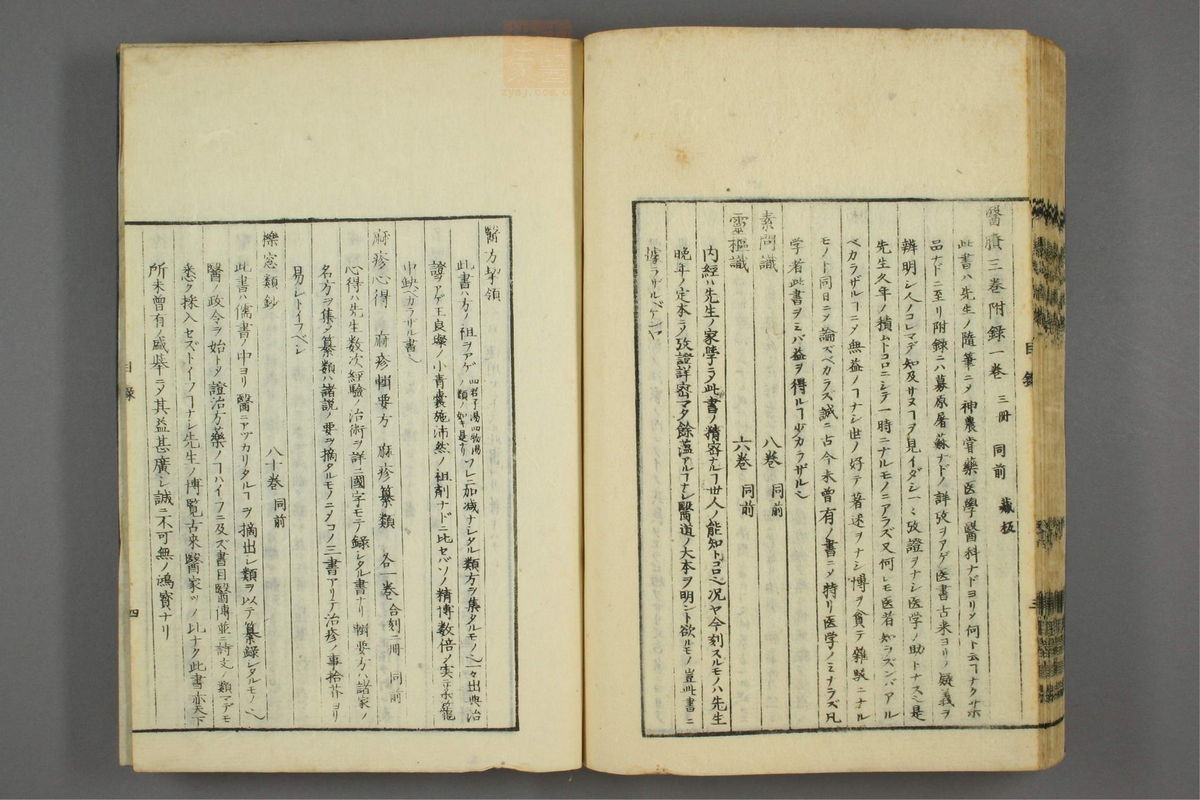 醫賸三卷附錄一卷 三冊 同前 藏板
此書ハ先生ノ隨筆ニㄨ神農嘗藥医學醫科ナドヨリ何ト云ヿナクサホ
品ナドニ至リ附錄ニハ募原屠蘇ナドノ詳攷ヲアゲ医書古来ヨリノ疑義ヲ
辨明シ人ノコレマデ知及サヌヿヲ見イダシ一々攷證ヲナシ医学ノ助トナスヘシ是
先生久年ノ積ムトコロニシテ一時ニナルモノニアラズ又何レモ医者知ラズンバアル
ベカラザルヿニㄨ無益ノヿナシ世ノ好テ著述ヲナシ博ヲ貪テ雜駁ニナル
モノト同日ニㄨ論ズベカラズ誠ニ古今未曽有ノ書ニㄨ特リ医学ノミナラズ凡
学者此書ヲミバ益ヲ得ルヿ少カラザルベシ
素問識 八卷 同前
靈樞識 六卷 同前
内經ハ先生ノ家學ニㄨ此書ノ精密ナルヿ世人ノ能知トコロ况ヤ今刻スルモノハ先生
晩年ノ定本ニㄨ攷證詳密マタ餘蘊アルヿナシ醫道ノ大本ヲ明ント欲ルモノ豈此書ニ
據ラザルベケンヤ
目錄 三
醫方挈領
此書ハ方ノ祖ヲアゲ 四君子湯四物湯ノ類ノ如キ是ナリ フレニ加减ナシタル類方ヲ集タルモノ也一々出典治
證ヲアゲ王良璨ノ小青囊施沛然ノ祖劑ナドニ比セバソノ精博数倍ノ実ニ藥籠
中缺ベカラザル書也
麻疹心得 麻疹輯要方 麻疹纂類 各一卷 合刻二冊 同前
心得ハ先生数次經驗ノ治術ヲ詳ニ國字モテ錄シタル書ナリ輯要方ハ諸家ノ
名方ヲ集メ纂類ハ諸説ノ要ヲ摘タルモノニㄨコノ三書アリテ治疹ノ事拾芥ヨリ
易シトイフベシ
櫟窓類鈔 八十卷 同前
此書ハ儒書ノ中ヨリ醫ニアヅカリタルヿヲ摘出シ類ヲ以テ纂錄シタルモノ也
醫ノ政令ヲ始トㄨ證治方藥ノヿハイフニ及ズ書目醫傳並ニ詩文ノ類マデモ
悉ク採入セズトイフヿナシ先生ノ博覧古来醫家ソノ比ナク此書亦天下
所未曽有ノ盛舉ニㄨ其益甚廣シ誠ニ不可無ノ鴻寳ナリ
目錄 四